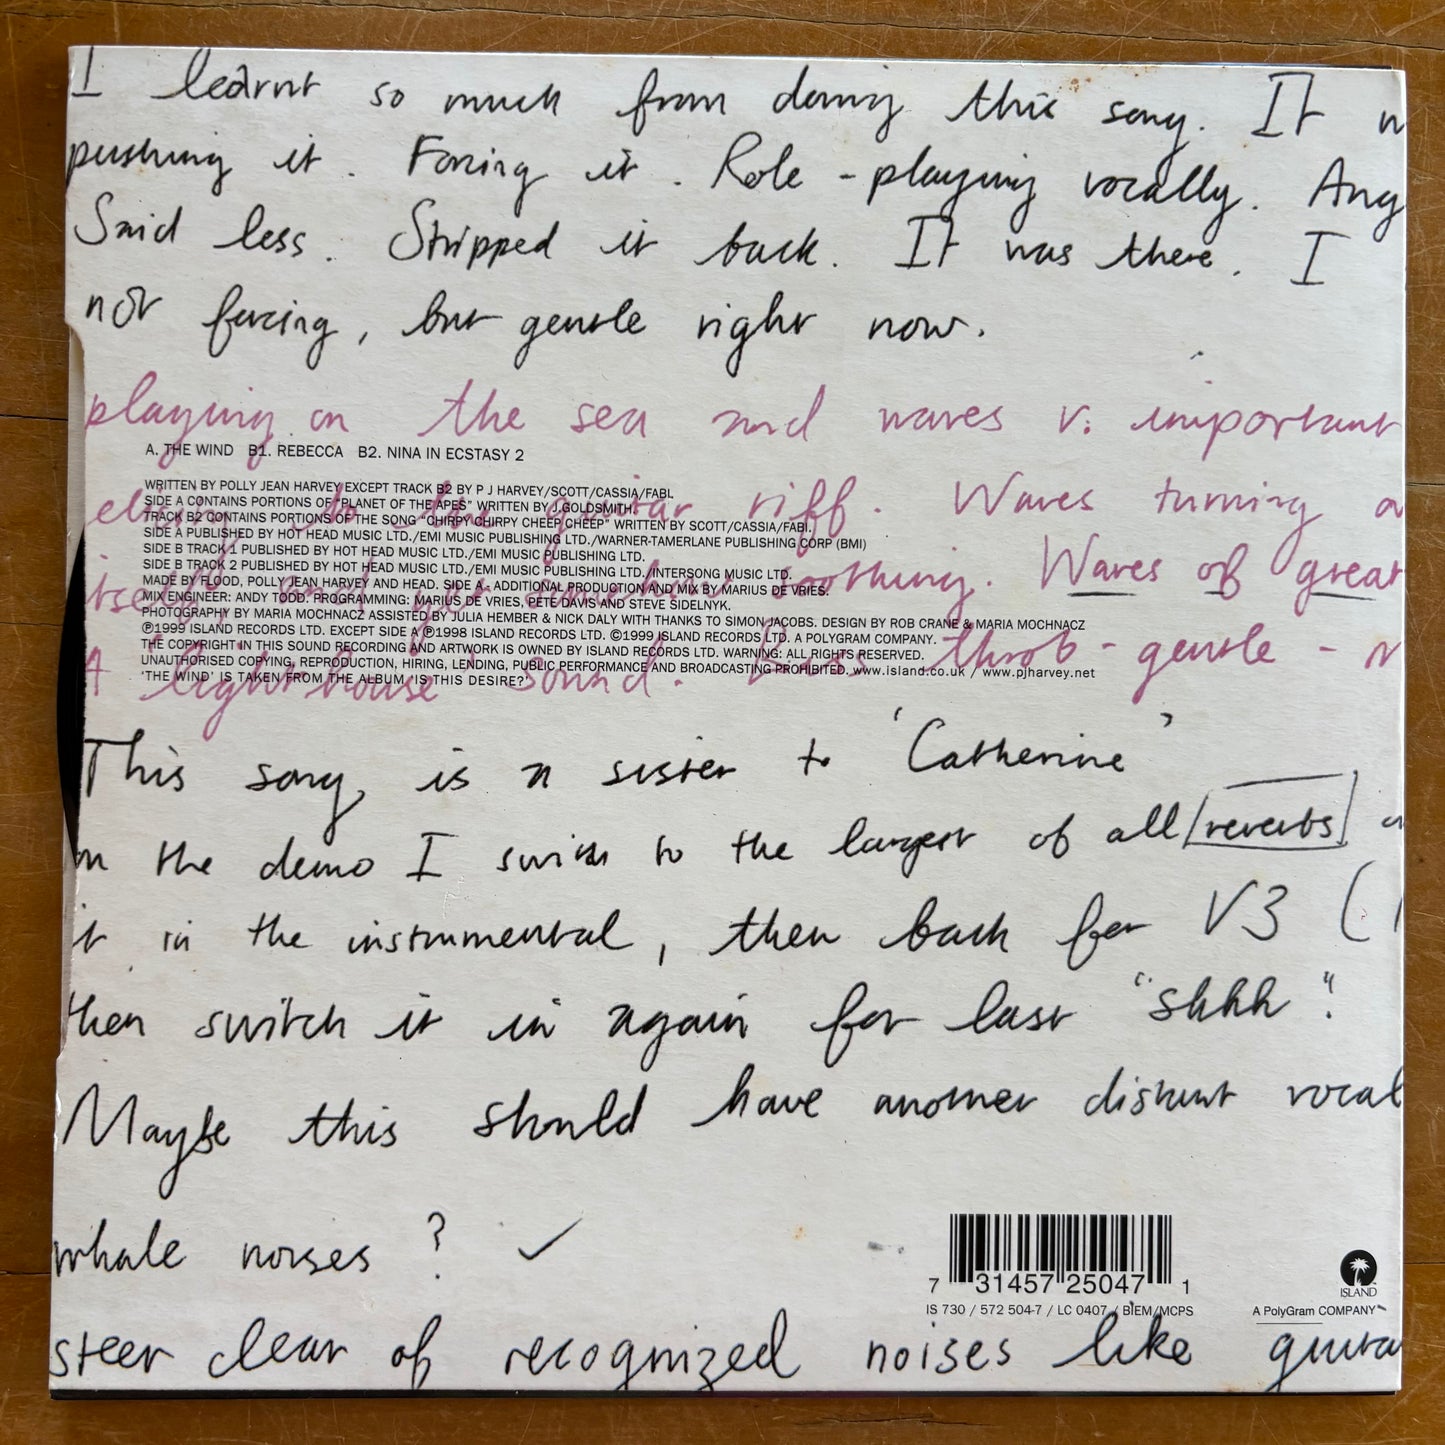 I learnt so much from doing this song. It w
pushing it. Forcing it. Role-playing vocally. Any
Said less. Stripped it back. It was there. I
not forcing, but gentle right now.
playing on the sea and waves v. important
A. THE WIND B1. REBECCA B2. NINA IN ECSTASY 2
WRITTEN BY POLLY JEAN HARVEY EXCEPT TRACK B2 BY P J HARVEY/SCOTT/CASSIA/FABI.
SIDE A CONTAINS PORTIONS OF "PLANET OF THE APES" WRITTEN BY J.GOLDSMITH.
guitar riff. Waves turning
TRACK B2 CONTAINS PORTIONS OF THE SONG "CHIRPY CHIRPY CHEEP CHEEP" WRITTEN BY SCOTT/CASSIA/FABI.
SIDE A PUBLISHED BY HOT HEAD MUSIC LTD./EMI MUSIC PUBLISHING LTD./WARNER-TAMERLANE PUBLISHING CORP (BMI)
SIDE B TRACK 1 PUBLISHED BY HOT HEAD MUSIC LTD./EMI MUSIC PUBLISHING LTD.
SIDE B TRACK 2 PUBLISHED BY HOT HEAD MUSIC LTD./EMI MUSIC PUBLISHING LTD./INTERSONG MUSIC LTD.
itself and yet somehow soothing. Waves of great
MADE BY FLOOD, POLLY JEAN HARVEY AND HEAD. SIDE A - ADDITIONAL PRODUCTION AND MIX BY MARIUS DE VRIES.
MIX ENGINEER: ANDY TODD. PROGRAMMING: MARIUS DE VRIES, PETE DAVIS AND STEVE SIDELNYK.
PHOTOGRAPHY BY MARIA MOCHNACZ ASSISTED BY JULIA HEMBER & NICK DALY WITH THANKS TO SIMON JACOBS. DESIGN BY ROB CRANE & MARIA MOCHNACZ
℗1999 ISLAND RECORDS LTD. EXCEPT SIDE A ℗1998 ISLAND RECORDS LTD. ©1999 ISLAND RECORDS LTD. A POLYGRAM COMPANY.
THE COPYRIGHT IN THIS SOUND RECORDING AND ARTWORK IS OWNED BY ISLAND RECORDS LTD. WARNING: ALL RIGHTS RESERVED.
UNAUTHORISED COPYING, REPRODUCTION, HIRING, LENDING, PUBLIC PERFORMANCE AND BROADCASTING PROHIBITED. www.island.co.uk / www.pjharvey.net
'THE WIND' IS TAKEN FROM THE ALBUM 'IS THIS DESIRE?'
A lighthouse sound. Bass throb - gentle -
This song is a sister to 'Catherine'
in the demo I switch to the largest of all [reverbs]
it in the instrumental, then back for V3 (
then switch it in again for last "shhh".
Maybe this should have another distant vocal
whale noises? ✓
7 31457 25047 1
IS 730 / 572 504-7 / LC 0407 / BIEM/MCPS
ISLAND
A PolyGram COMPANY
steer clear of recognized noises like guita